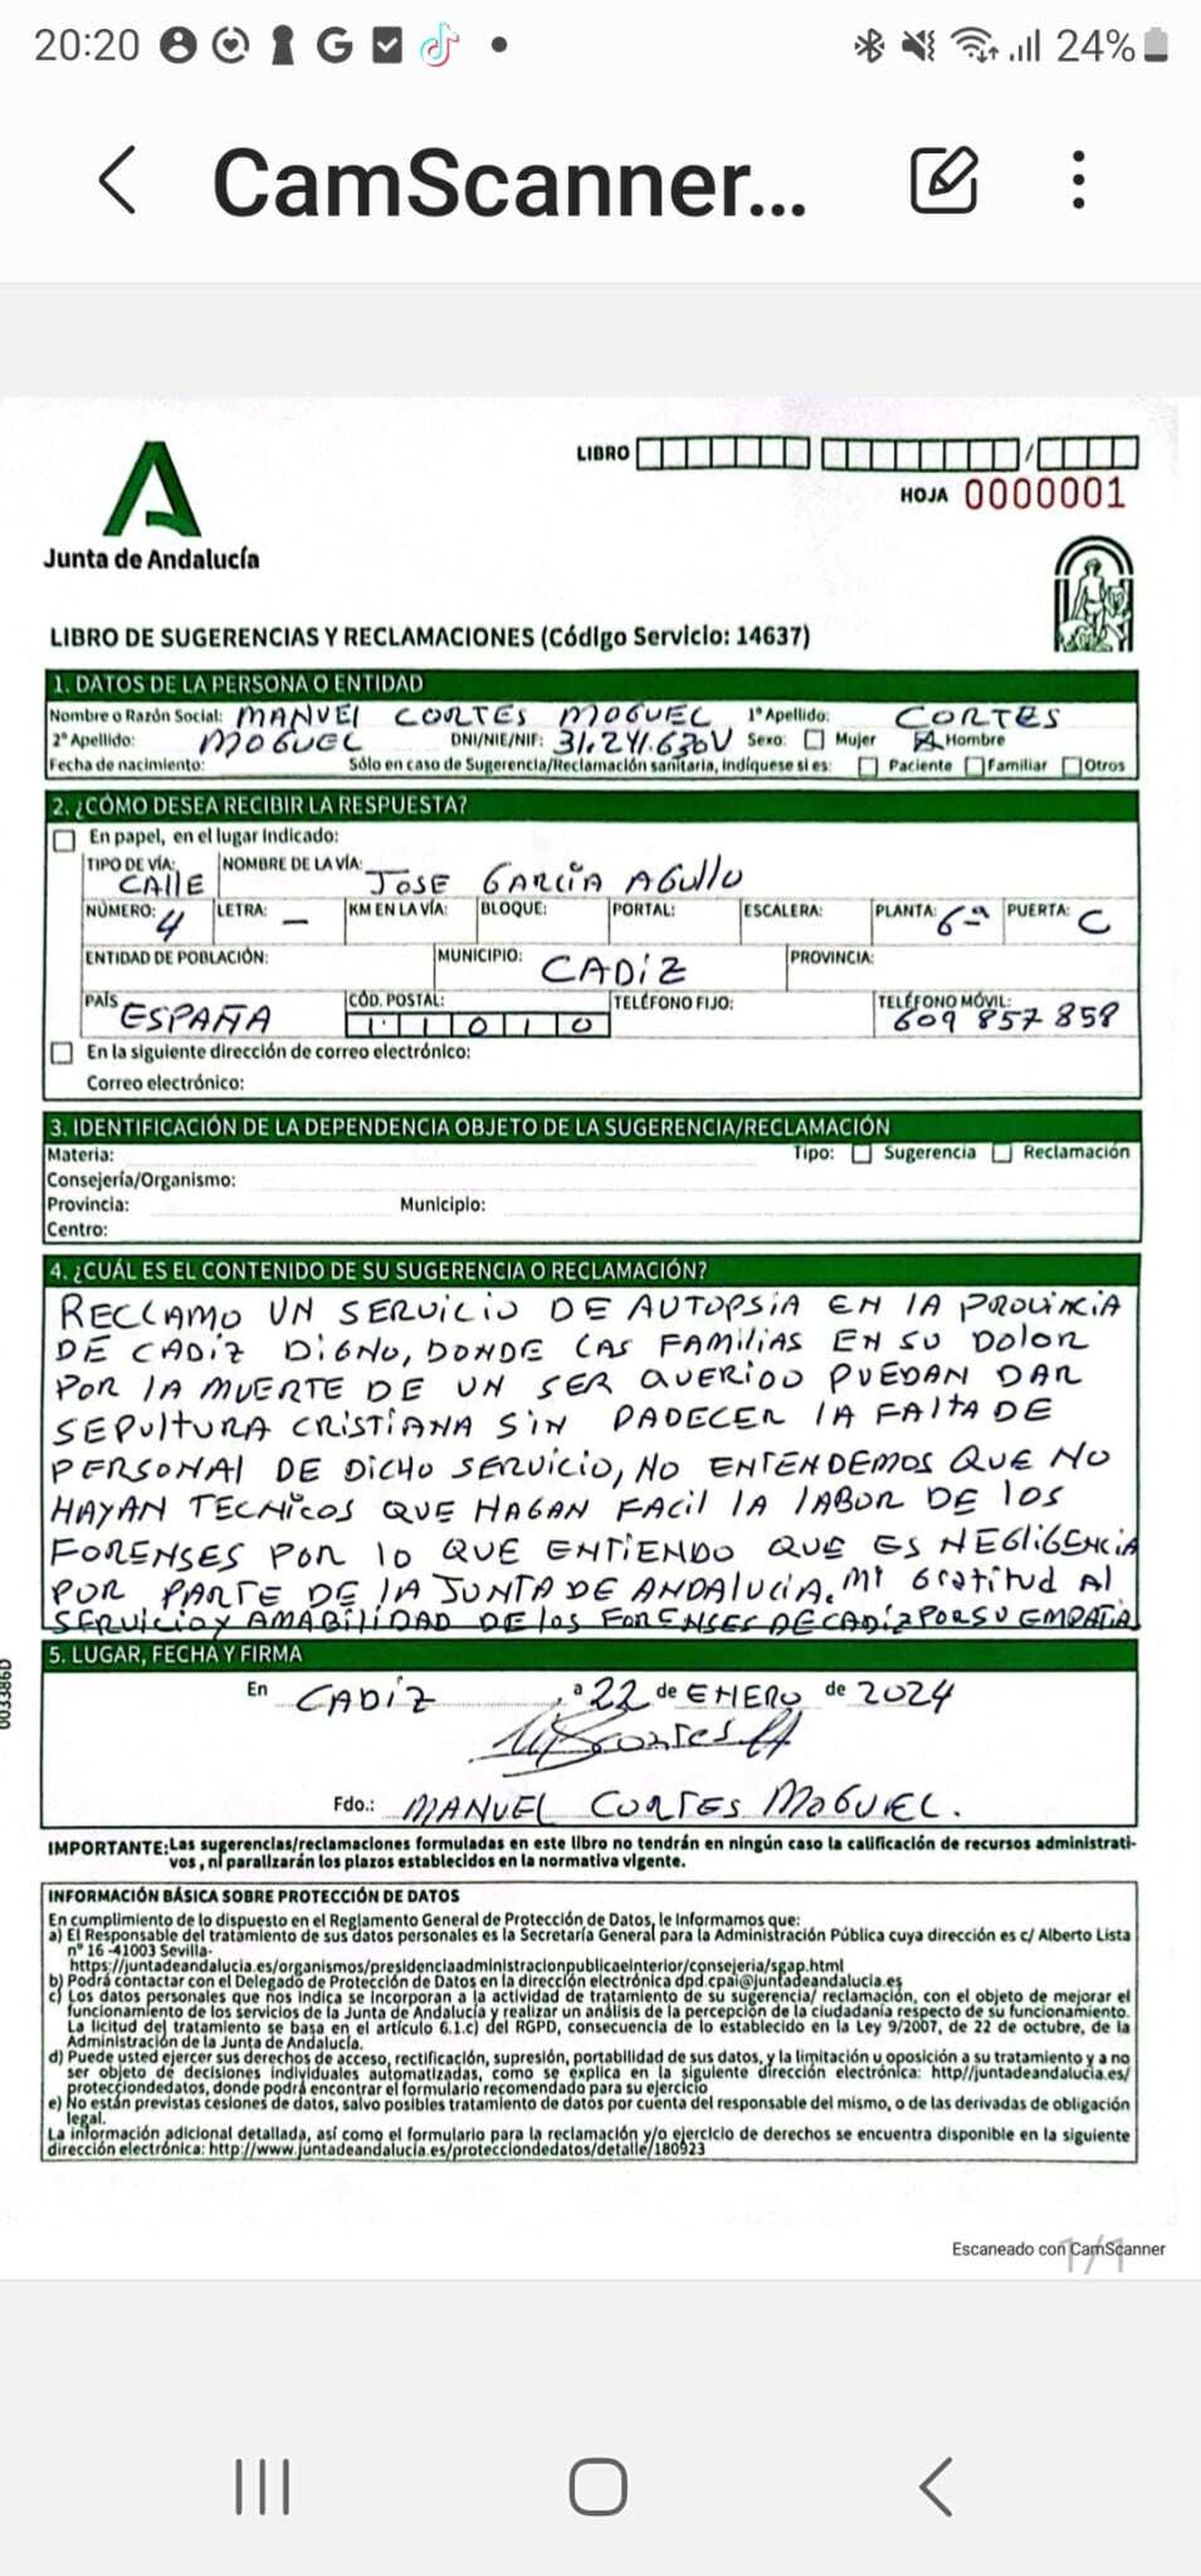 20:20
24%
CamScanner...
LIBRO
/
HOJA 0000001
Junta de Andalucía
LIBRO DE SUGERENCIAS Y RECLAMACIONES (Código Servicio: 14637)
1. DATOS DE LA PERSONA O ENTIDAD
Nombre o Razón Social: MANUEl CORTES MOGUEL 1º Apellido: CORTES
2º Apellido: MOGUEL DNI/NIE/NIF: 31.241.630V Sexo: Mujer Hombre
Fecha de nacimiento: Sólo en caso de Sugerencia/Reclamación sanitaria, indíquese si es: Paciente Familiar Otros
2. ¿CÓMO DESEA RECIBIR LA RESPUESTA?
En papel, en el lugar indicado:
TIPO DE VÍA: CAllE NOMBRE DE LA VÍA: JOSE GARCÍA AGUllO
NÚMERO: 4 LETRA: – KM EN LA VÍA: BLOQUE: PORTAL: ESCALERA: PLANTA: 6ª PUERTA: C
ENTIDAD DE POBLACIÓN: MUNICIPIO: CADIZ PROVINCIA:
PAÍS ESPAÑA CÓD. POSTAL: 11010 TELÉFONO FIJO: TELÉFONO MÓVIL: 609 857 858
En la siguiente dirección de correo electrónico:
Correo electrónico:
3. IDENTIFICACIÓN DE LA DEPENDENCIA OBJETO DE LA SUGERENCIA/RECLAMACIÓN
Materia: Tipo: Sugerencia Reclamación
Consejería/Organismo:
Provincia: Municipio:
Centro:
4. ¿CUÁL ES EL CONTENIDO DE SU SUGERENCIA O RECLAMACIÓN?
RECLAMO UN SERVICIO DE AUTOPSIA EN lA PROVINCIA
DE CADIZ DIGNO, DONDE LAS FAMILIAS EN SU DOLOR
POR lA MUERTE DE UN SER QUERIDO PUEDAN DAR
SEPUlTURA CRISTIANA SIN PADECER lA FAltA DE
PERSONAl DE DICHO SERVICIO, NO ENTENDEMOS QUE NO
HAYAN TECNICOS QUE HAGAN FACIl lA lABOR DE lOS
FORENSES POR lO QUE ENTIENDO QUE ES NEGlIGENCIA
POR PARTE DE lA JUNTA DE ANDAlUCIA. MI Gratitud Al
SERVICIO Y AMABILIDAD DE los FORENSES DE CADIZ POR SU EMPATIA
5. LUGAR, FECHA Y FIRMA
En CADIZ, a 22 de ENERO de 2024
Fdo.: MANUEL CORTES MOGUEL.
003386D
IMPORTANTE: Las sugerencias/reclamaciones formuladas en este libro no tendrán en ningún caso la calificación de recursos administrati-
vos, ni paralizarán los plazos establecidos en la normativa vigente.
INFORMACIÓN BÁSICA SOBRE PROTECCIÓN DE DATOS
En cumplimiento de lo dispuesto en el Reglamento General de Protección de Datos, le informamos que:
a) El Responsable del tratamiento de sus datos personales es la Secretaría General para la Administración Pública cuya dirección es c/ Alberto Lista
nº 16 -41003 Sevilla-
https://juntadeandalucia.es/organismos/presidenciaadministracionpublicaeinterior/consejeria/sgap.html
b) Podrá contactar con el Delegado de Protección de Datos en la dirección electrónica dpd.cpai@juntadeandalucia.es
c) Los datos personales que nos indica se incorporan a la actividad de tratamiento de su sugerencia/ reclamación, con el objeto de mejorar el
funcionamiento de los servicios de la Junta de Andalucía y realizar un análisis de la percepción de la ciudadanía respecto de su funcionamiento.
La licitud del tratamiento se basa en el artículo 6.1.c) del RGPD, consecuencia de lo establecido en la Ley 9/2007, de 22 de octubre, de la
Administración de la Junta de Andalucía.
d) Puede usted ejercer sus derechos de acceso, rectificación, supresión, portabilidad de sus datos, y la limitación u oposición a su tratamiento y a no
ser objeto de decisiones individuales automatizadas, como se explica en la siguiente dirección electrónica: http//juntadeandalucia.es/
protecciondedatos, donde podrá encontrar el formulario recomendado para su ejercicio
e) No están previstas cesiones de datos, salvo posibles tratamiento de datos por cuenta del responsable del mismo, o de las derivadas de obligación
legal.
La información adicional detallada, así como el formulario para la reclamación y/o ejercicio de derechos se encuentra disponible en la siguiente
dirección electrónica: http://www.juntadeandalucia.es/protecciondedatos/detalle/180923
Escaneado con CamScanner
1/1